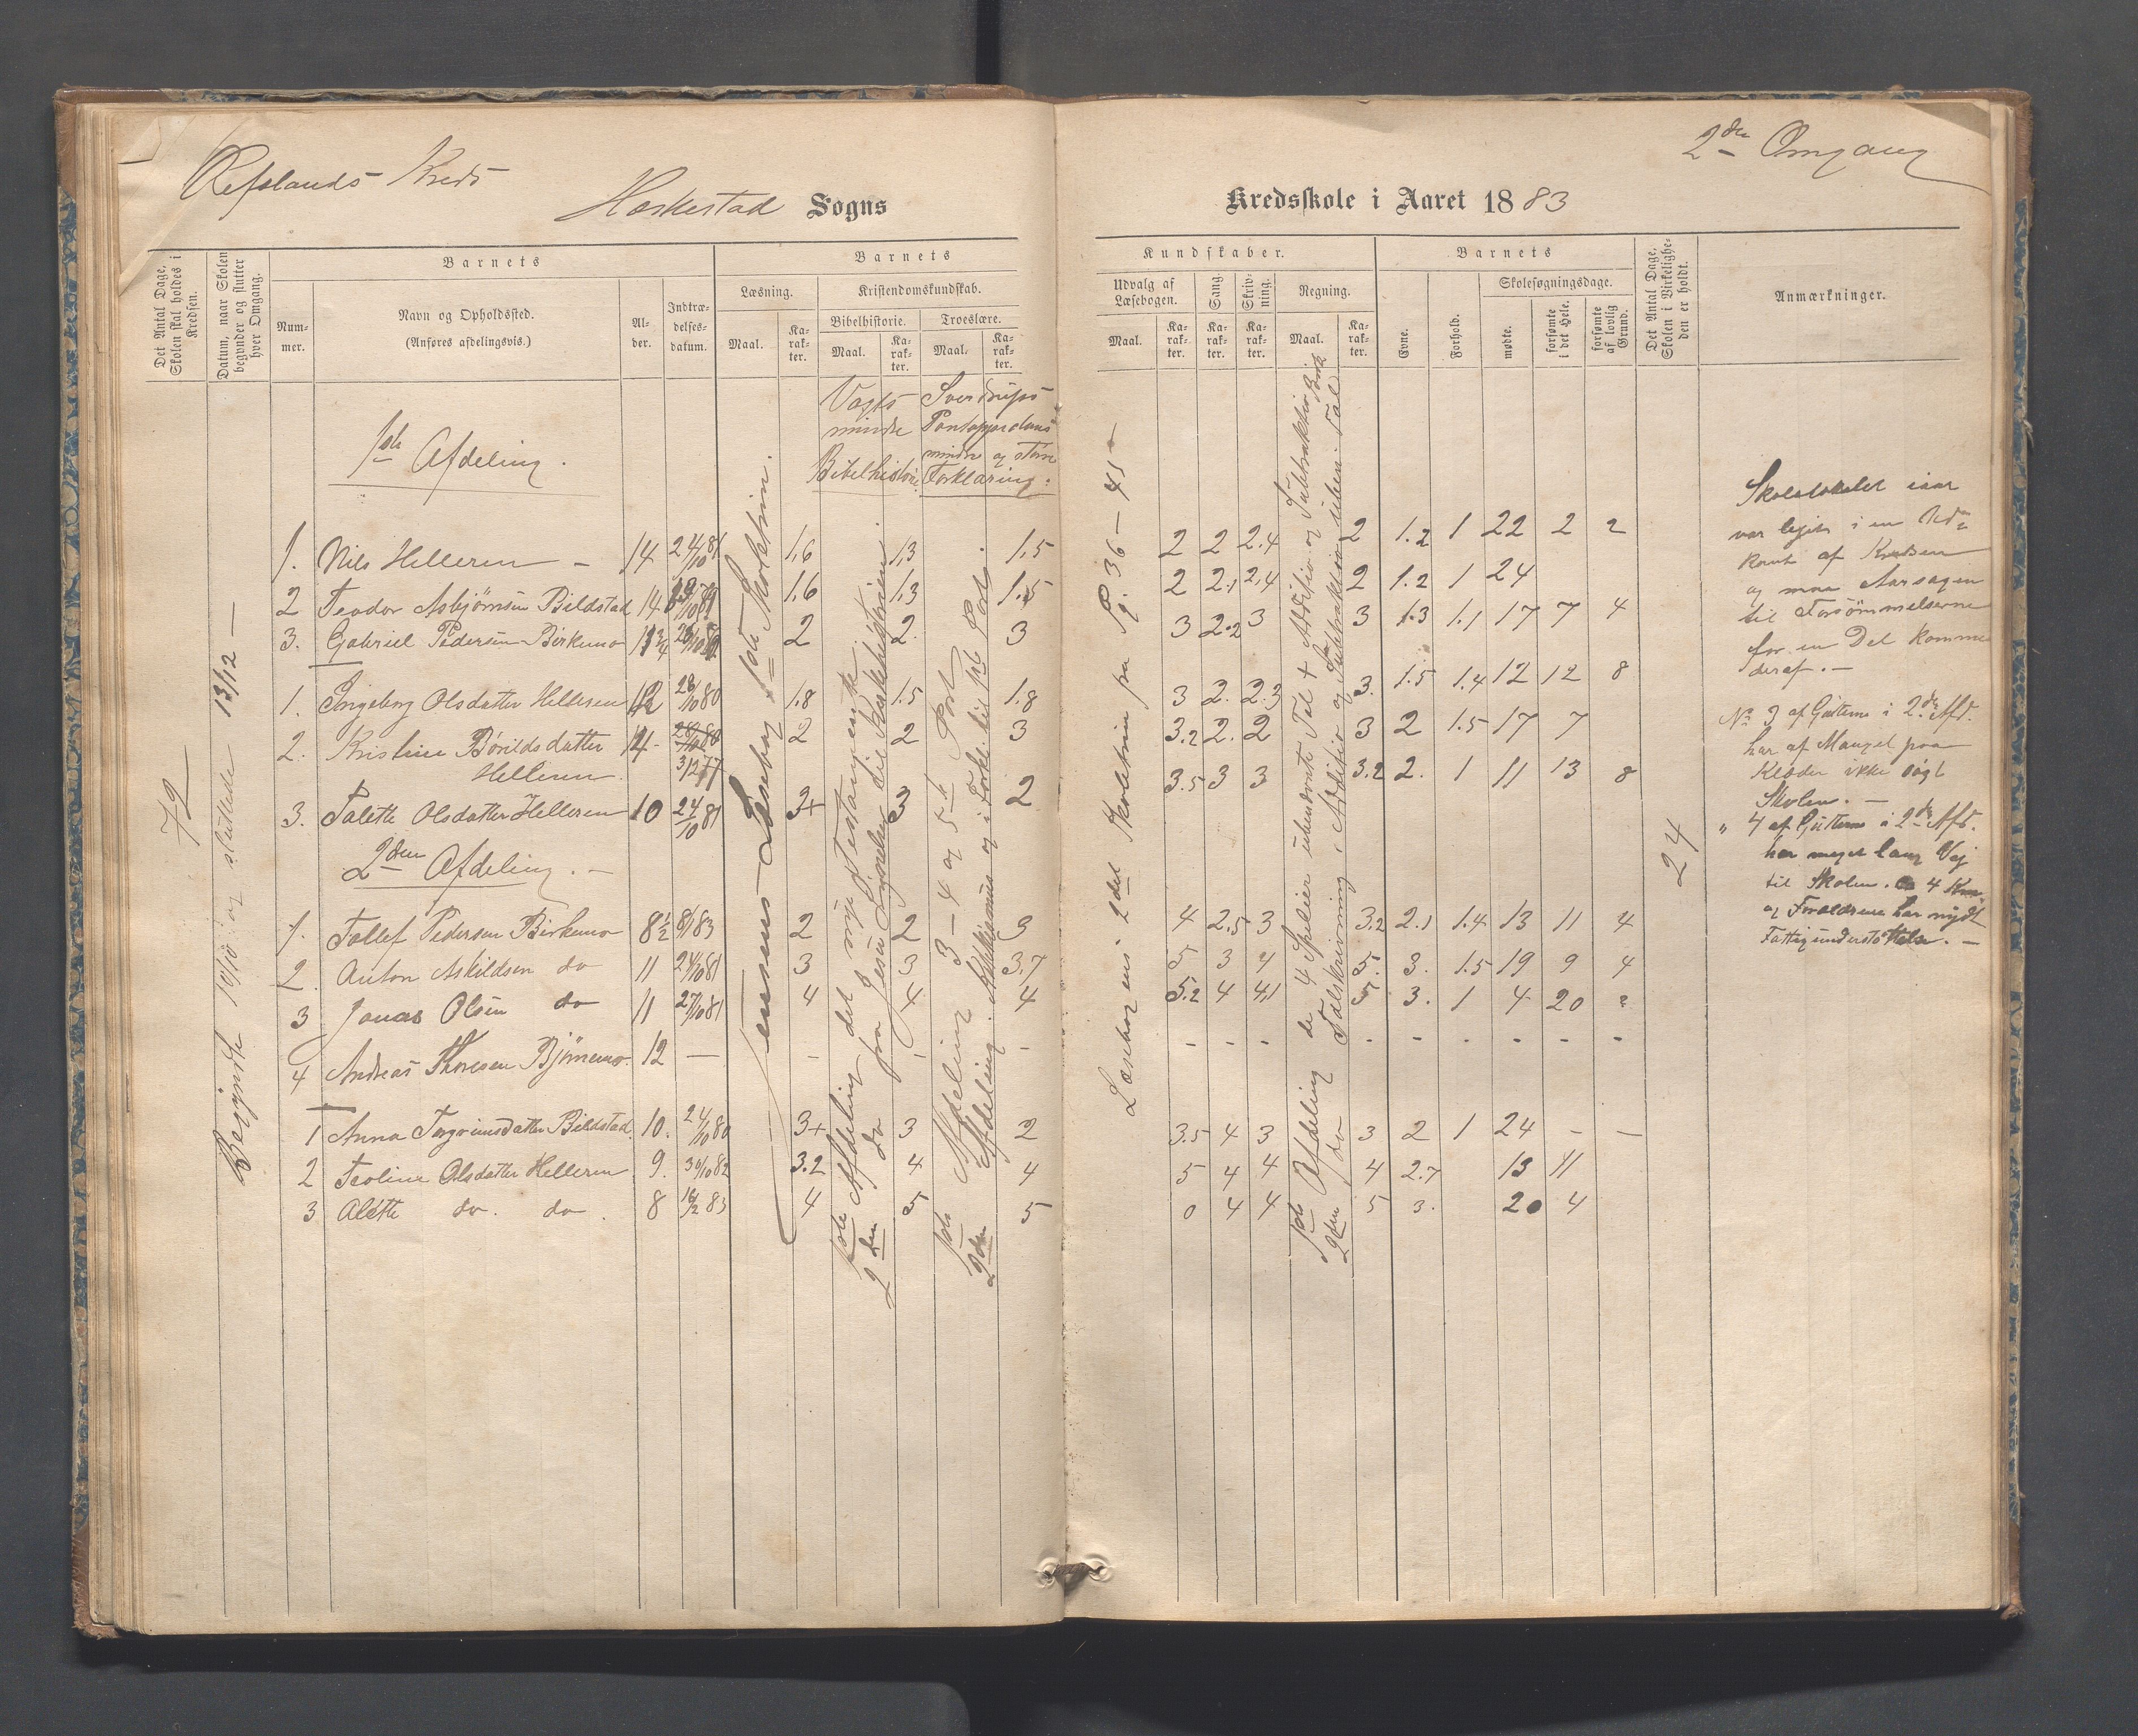 Refslands Kreds
Heskestad Sogns
Det Antal Dage, Skolen skal holdes i Kredsen.
Datum, naar Skolen begynder og slutter hver Omgang.
Barnets
Num-mer.
Navn og Opholdssted.
(Anføres afdelingsvis.)
Al-der.
Indtræ-delses-datum.
Barnets
Læsning.
Maal.
Ka-rak-ter.
Kristendomskundskab.
Bibelhistorie.
Maal.
Ka-rak-ter.
Troeslære.
Maal.
Ka-rak-ter.
72
Begyndte 10/10 og sluttede 13/12 —
Vogts mindre Bibelhistorie.
Sverdrups Pontoppidans mindre og større Forklaring.
Jensens Læsebog 1ste Skoletrin.
1ste Afdeling.
1. Nils Helleren – 14 24/10 81 1.6 1.3 1.5
2 Teodor Asbjørnsen Bildstad 14 1.6 1.3 1.5
3. Gabriel Pedersen Birkemo 2 2. 3
1. Ingeborg Olsdatter Helleren 12 28/10 80 1.8 1.5 1.8
2. Kristine Børildsdatter 14 28/10 80 2 2 3
Helleren. 3/12 77
3. Talette Olsdatter Helleren 10 24/10 81 3+ 3 2
2den Afdeling. –
1. Tollef Pedersen Birkemo 8½ 8/1 83 2 2 3
2. Anton Askildsen do 11 24/10 81 3 3 3.7
3 Jonas Olsen do 11 27/10 81 4 4 4
4 Andreas Thoresen Bjørnemo. 12 — - - -
1 Anna Torgrimsdatter Bildstad. 10. 24/10 80 3+ 3 2
2 Teoline Olsdatter Helleren 9. 30/10 82 3.2 4 4
3 Alette do. do. 8 16/2 83 4 5 5
1ste Afdeling det nye Testamente
2den do fra Jesu Lignelser til Kirkehistorien.
1ste Afdeling 3 – 4 og 5te Part
2den Afdeling. Katekismus og i Forkl. til 1ste Part.
2den Omgang
Kredsskole i Aaret 1883
Kundskaber.
Udvalg af Læsebogen.
Maal.
Ka-rak-ter.
Sang.
Ka-rak-ter.
Skriv-ning.
Ka-rak-ter.
Regning.
Maal.
Ka-rak-ter.
Barnets
Evne.
Forhold.
Skolesøgningsdage.
mødte.
forsømte i det Hele.
forsømte af lovlig Grund.
Det Antal Dage, Skolen i Virkelighe-den er holdt.
Anmærkninger.
Læsebogens 2det Skoletrin fra Pg. 36 – 41 –
1ste Afdeling de 4 Spesier ubenævnte Tal + Addition og Subtraktion
2den do Talskrivning, Addition og Subtraktion i ubenævnte Tal
2 2 2.4 2 1.2 1 22 2 2
2 2.1 2.4 2 1.2 1 24
3 2.2 3 3 1.3 1.1 17 7 4
3 2. 2.3 3. 1.5 1.4 12 12 8
3.2 2. 2 3 2 1.5 17 7
3.5 3 3 3.2 2. 1 11 13 8
4 2.5 3 3.2 2.1 1.4 13 11 4
5 3 4 5. 3. 1.5 19 9 4
5.2 4 4.1 5 3. 1 4 20 ?
- - - - - - - - -
3.5 4 3 3 2 1 24 – —
5 4 4 4 2.7 13 11
0 4 4 5 3. 20 4
24
Skolelokalet iaar
var leiet i en Ud-
kant af Kredsen
og maa Aarsagen
til Forsømmelserne
for en Del komme
deraf. –
No 3 af Gutterne i 2den Afd.
har af Mangel paa
Klæder ikke søgt
Skolen. –
" 4 af Gutterne i 2den Afd.
har meget lang Vej
til Skolen. 4
og Forældrene har nydt
Fattigunderstøttelse. –